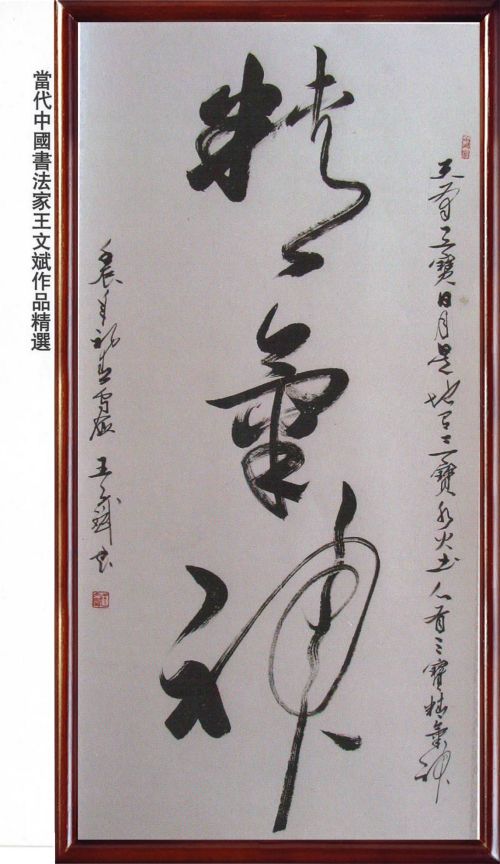 天有三寶日月星地有三寶水火土人有三寶精氣神
精氣神
壬辰年初春 王文斌書
當代中國書法家王文斌作品精選